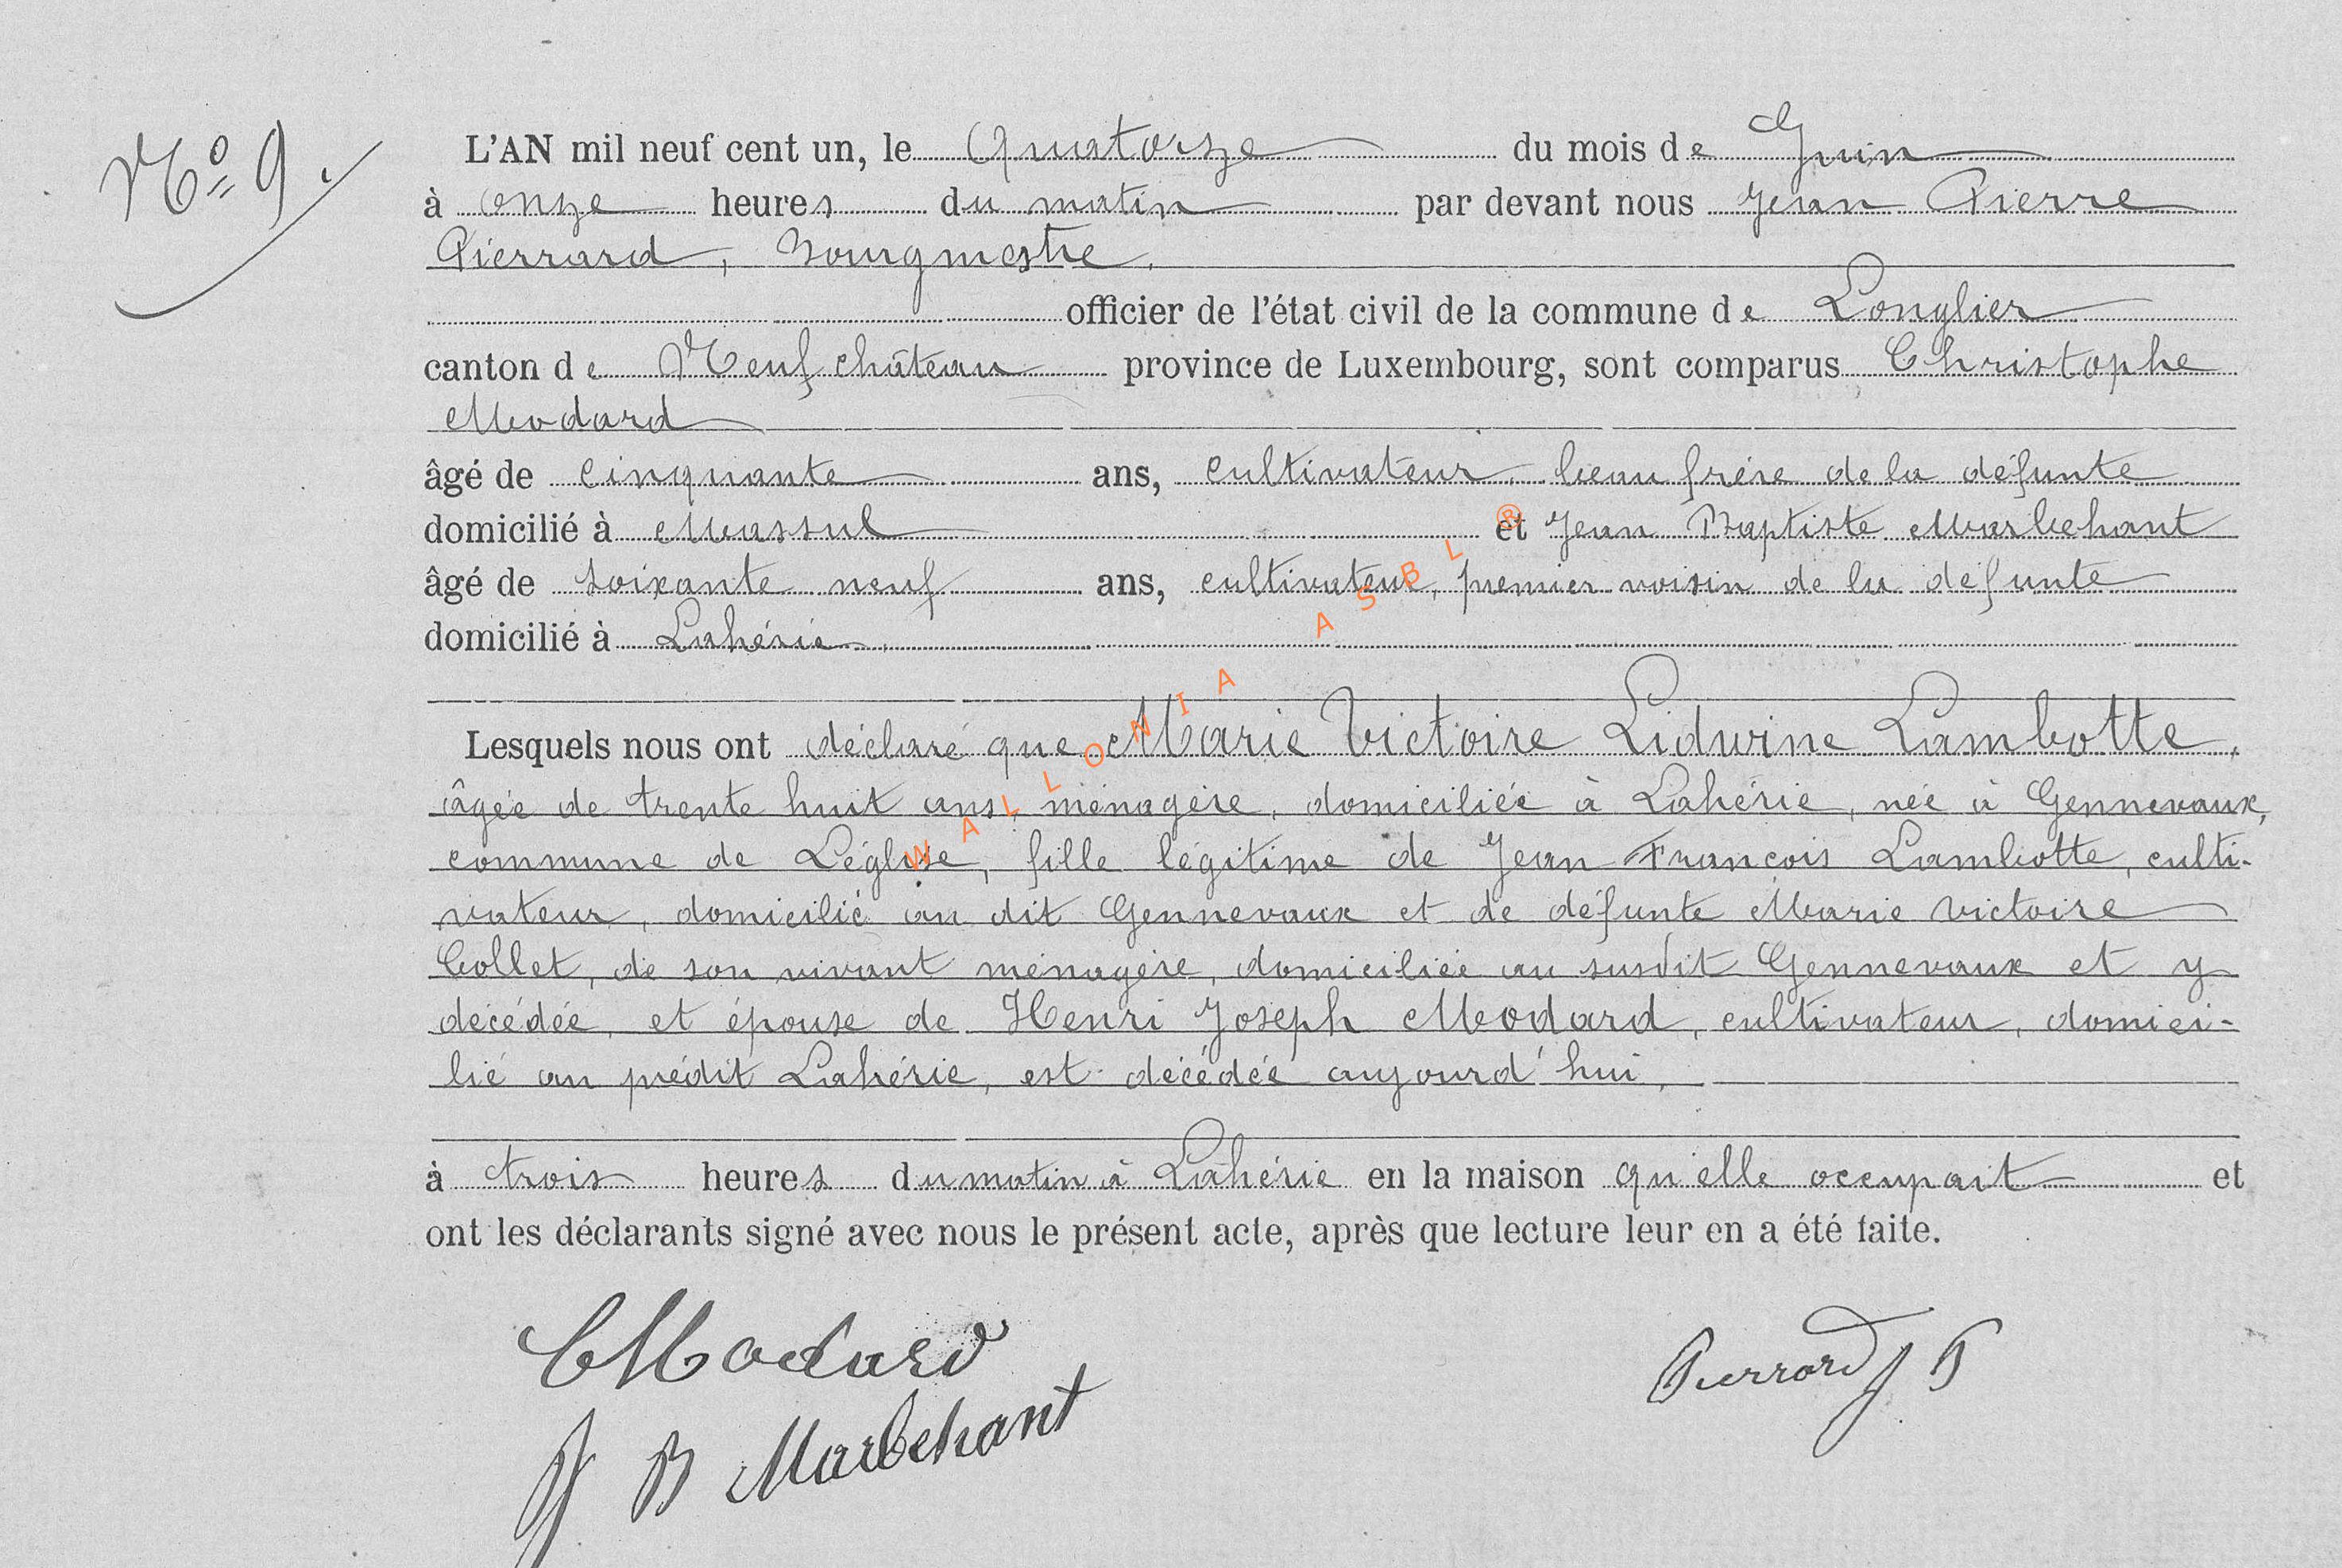 N° 9.
L'AN mil neuf cent un, le Quatorze du mois de Juin
à onze heures du matin par devant nous Jean Pierre
Pierrard, Bourgmestre.
officier de l'état civil de la commune de Longlier
canton de Neufchâteau province de Luxembourg, sont comparus Christophe
Modard
âgé de cinquante ans, cultivateur, beau frère de la défunte
domicilié à Massul et Jean Baptiste Marbehant
âgé de soixante neuf ans, cultivateur, premier voisin de la défunte
domicilié à Lahérie
Lesquels nous ont déclaré que Marie Victoire Lidwine Lambotte,
âgée de trente huit ans, ménagère, domiciliée à Lahérie, née à Gennevaux,
commune de Léglise, fille légitime de Jean François Lambotte, culti-
vateur, domicilié au dit Gennevaux et de défunte Marie Victoire
Collet, de son vivant ménagère, domiciliée au susdit Gennevaux et y
décédée, et épouse de Henri Joseph Modard, cultivateur, domici-
lié au prédit Lahérie, est décédée aujourd'hui,
à trois heures du matin à Lahérie en la maison qu'elle occupait et
ont les déclarants signé avec nous le présent acte, après que lecture leur en a été faite.
C Modard
Pierrard J P
J B Marbehant
WALLONIA ASBL ®